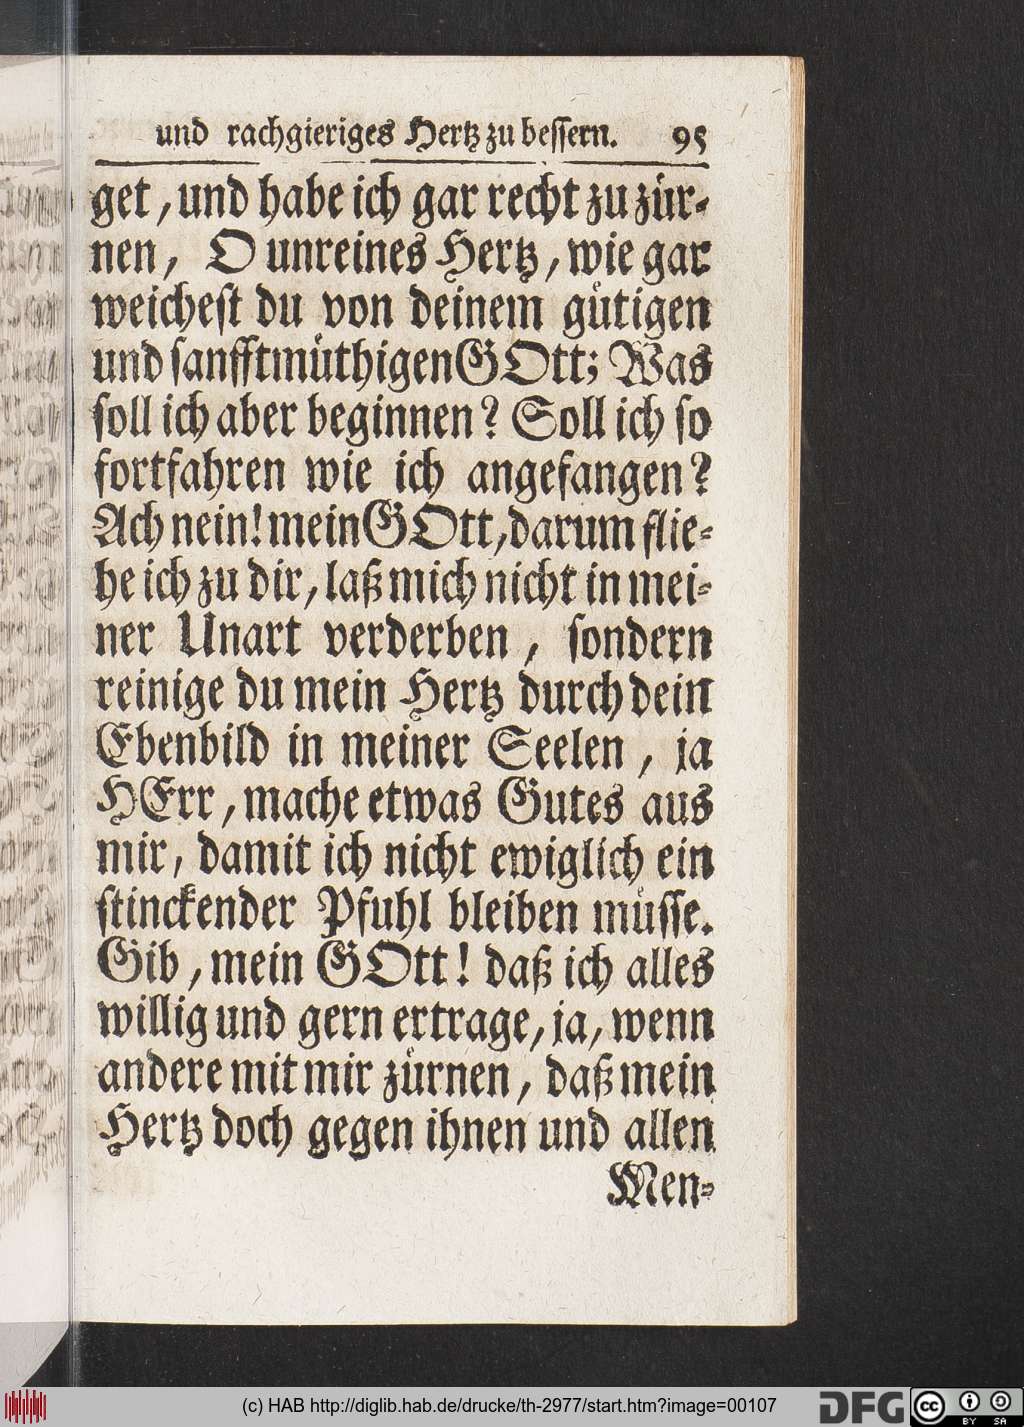 und rachgieriges Hertz zu bessern. 95
get, und habe ich gar recht zu zür-
nen, O unreines Hertz, wie gar
weichest du von deinem gütigen
und sanfftmüthigen GOtt; Was
soll ich aber beginnen? Soll ich so
fortfahren wie ich angefangen?
Ach nein! mein GOtt, darum flie-
he ich zu dir, laß mich nicht in mei-
ner Unart verderben, sondern
reinige du mein Hertz durch dein
Ebenbild in meiner Seelen, ja
HErr, mache etwas Gutes aus
mir, damit ich nicht ewiglich ein
stinckender Pfuhl bleiben müsse.
Gib, mein GOtt! daß ich alles
willig und gern ertrage, ja, wenn
andere mit mir zürnen, daß mein
Hertz doch gegen ihnen und allen
Men-
(c) HAB http://diglib.hab.de/drucke/th-2977/start.htm?image=00107
DFG cc BY SA